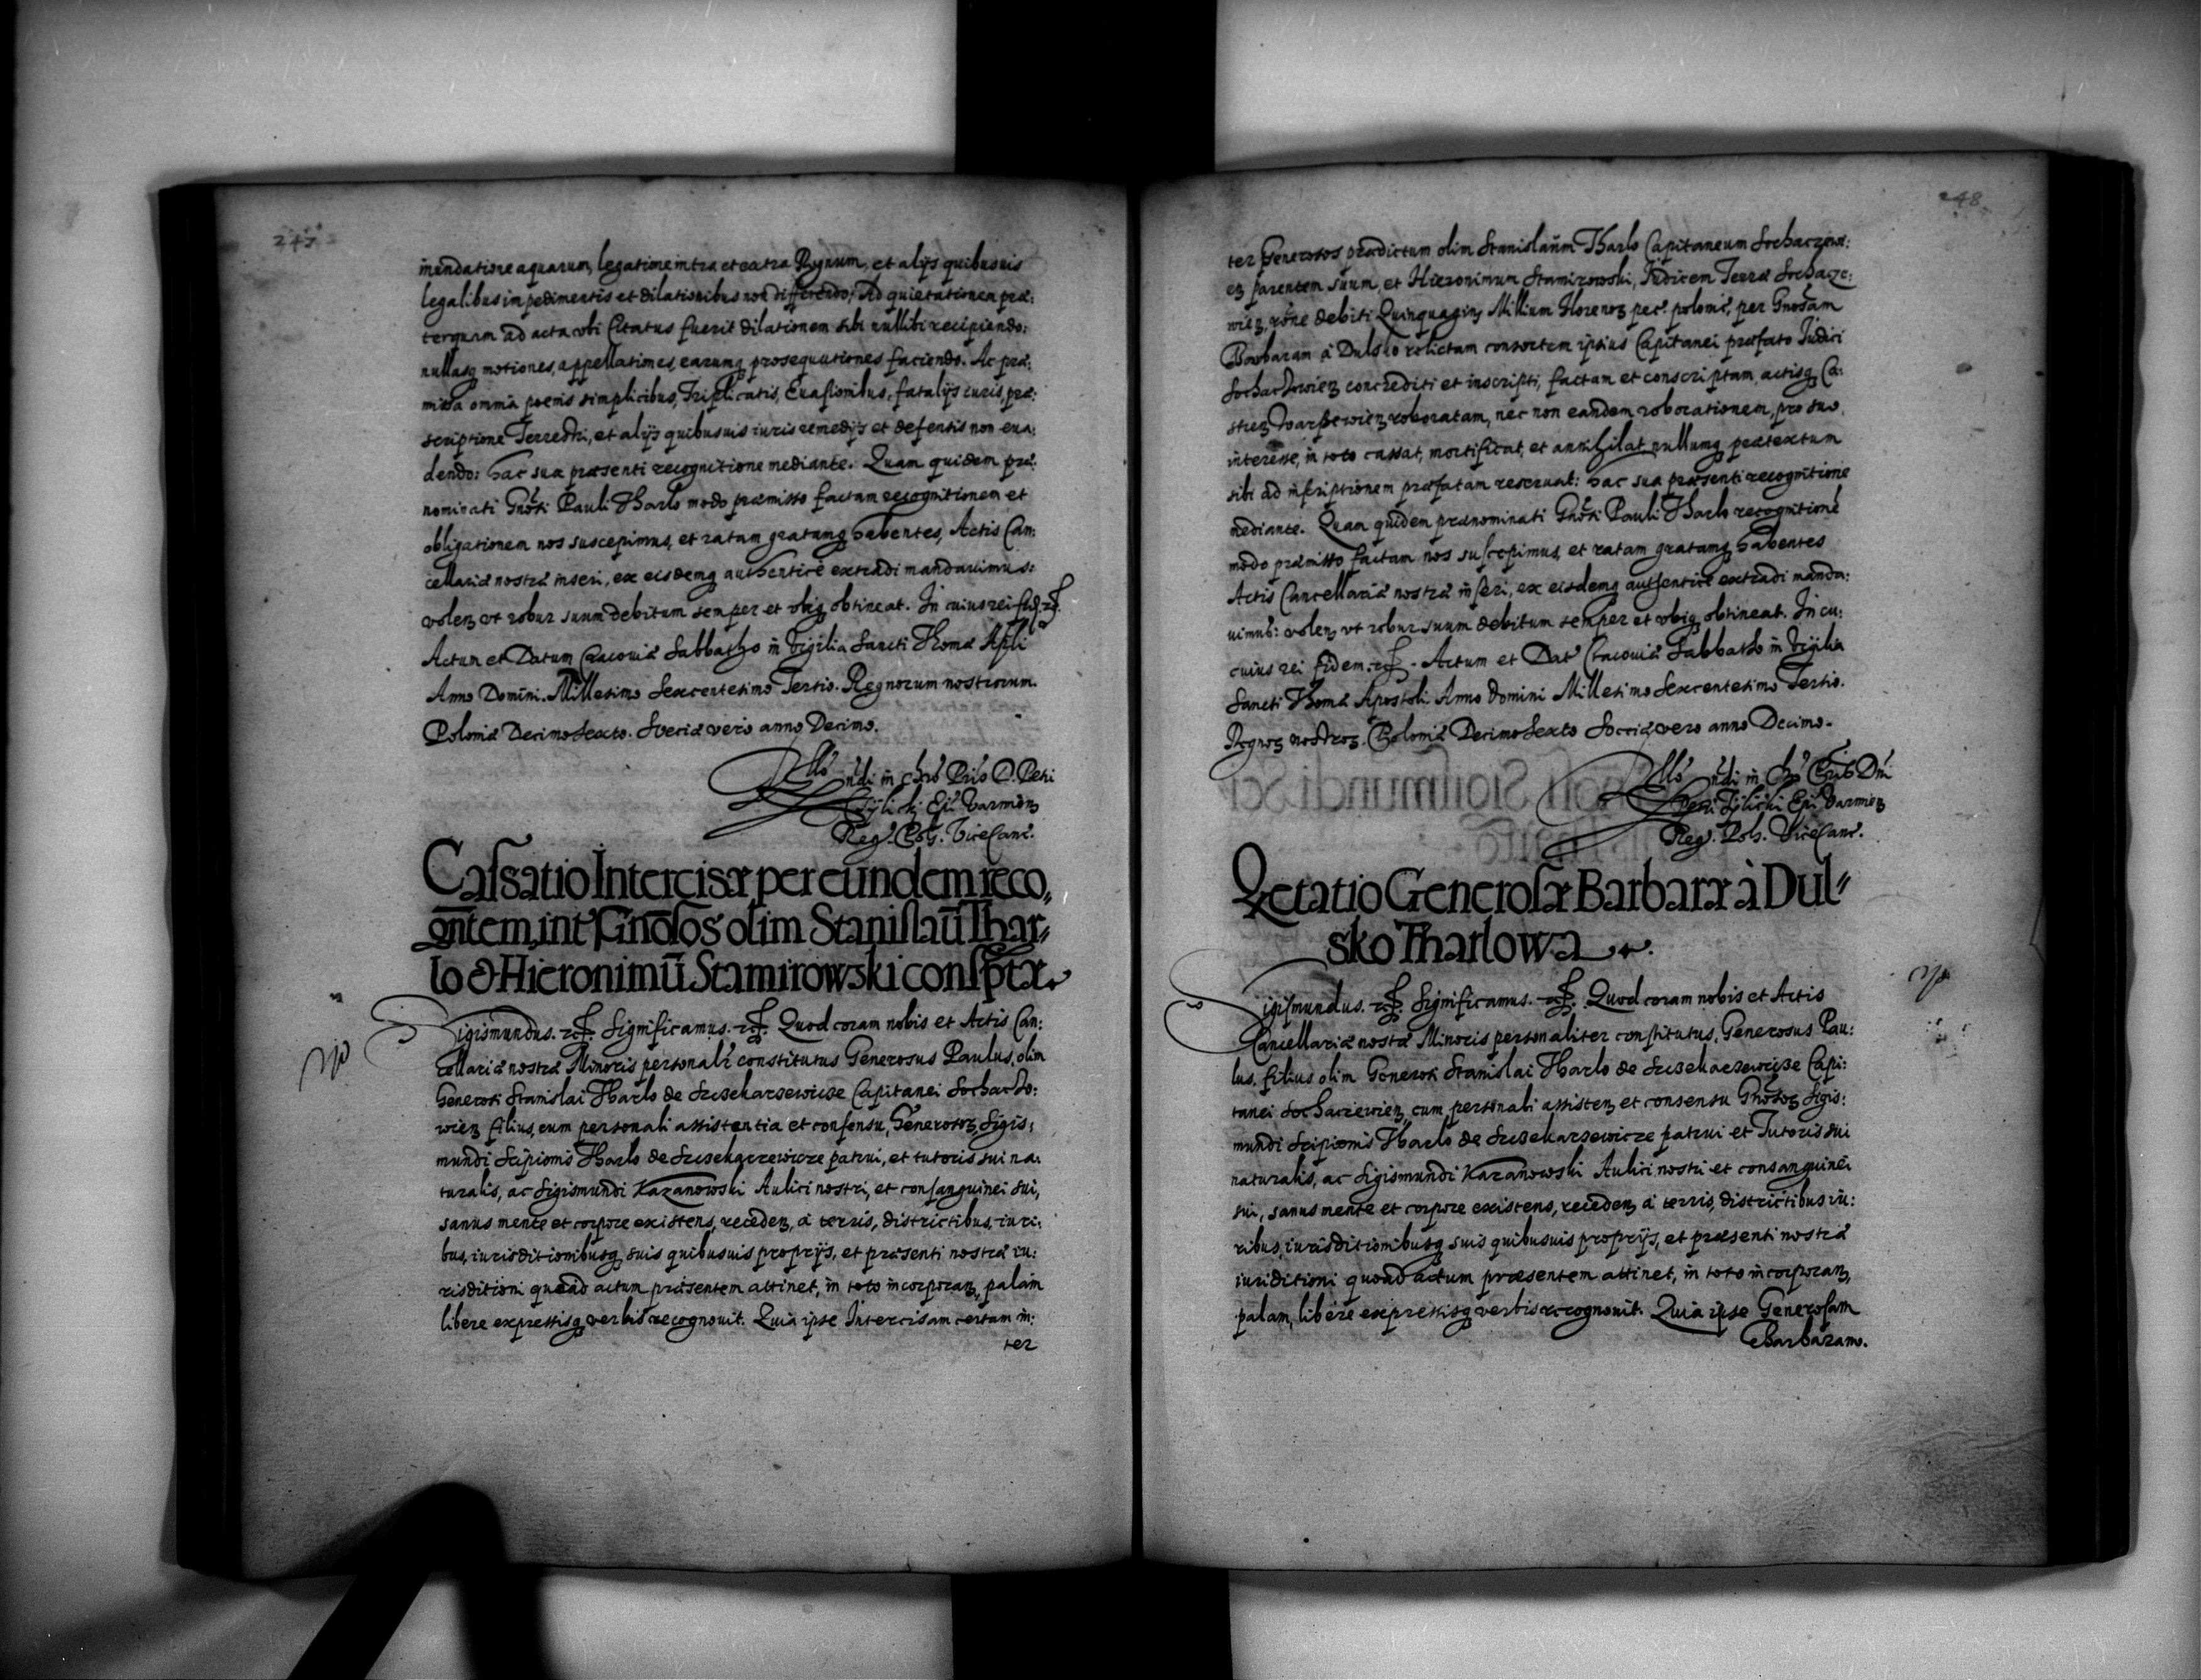 247
inundatione aquarum, legatione intra et extra Regnum, et alijs quibusuis
legalibus impedimentis et dilationibus non differendo; Ad quietationem præ:
terquam ad acta vbi Citatus fuerit dilationem sibi nullibi recipiendo:
nullasq motiones, appellationes, earumq prosequutiones faciendo. Ac præ:
missa omnia poenis simplicibus, Triplicatis, Euasionibus, fatalijs iuris, præ:
scriptione Terrestri, et alijs quibusuis iuris remedijs et defensis non eua:
dendo: hac sua præsenti recognitione mediante. Quam quidem præ:
nominati Gnosi Pauli Tharlo modo præmisso factam recognitionem et
obligationem nos suscepimus, et ratam gratamq habentes, Actis Can:
cellariæ nostræ inseri, ex eisdemq authenticè extradi mandauimus:
volen vt robur suum debitum semper et vbiq obtineat. In cuius rei fid. etc.
Actum et Datum Cracouiæ Sabbatho in Vigilia Sancti Thomæ Apli
Anno Domini. Millesimo Sexcentesimo Tertio. Regnorum nostrorum.
Poloniæ Decimo Sexto. Sveciæ vero anno Decimo.
Rllo ndi in Chro Pris D. Petri
Tijlicki Epi Varmien
Reg. Pol. ViceCanc.
Cassatio Intercisæ per eundem reco,
gntem, int Gnosos olim Stanislau Thar„
lo & Hieronimu Stamirowski conspta
Sigismundus. etc. Significamus. etc. Quod coram nobis et Actis Can:
cellariæ nostræ Minoris personalr constitutus Generosus Paulus, olim
Generosi Stanislai Tharlo de Sczekarzewicze Capitanei Sochaczo:
wien filius, cum personali assistentia et consensu, Generosor, Sigis:
mundi Scipionis Tharlo de Sczekarzewicze patrui, et tutoris sui na:
turalis, ac Sigismundi Kazanowski Aulici nostri, et consanguinei sui,
sanus mente et corpore existens, receden, à terris, districtibus, iuri:
bus, iurisditionibusq suis quibusuis proprijs, et præsenti nostræ iu:
risditioni quoad actum præsentem attinet, in toto incorporan, palam
libere expressisq verbis recognouit. Quia ipse Intercisam certam in:
ter
248
ter Generosos prædictum olim Stanislaum Tharlo Capitaneum Sochaczew:
en parentem suum, et Hieronimum Stamirowski, Iudicem Terræ Sochacze:
wien, rone debiti Quinquagin Millium Florenor pec. polonic, per Gnosam
Barbaram à Dulsko relictam consortem ipsius Capitanei præfato Iudici
Sochaczowien concrediti et inscripti, factam et conscriptam, actisq Ca:
stren Varssewien roboratam, nec non eandem roborationem, pro suo
interesse, in toto cassat, mortificat, et annihilat, nullumq prætextum
sibi ad inscriptionem præfatam reseruat: hac sua præsenti recognitione
mediante. Quam quidem prænominati Gnosi Pauli Tharlo recognitione
modo præmisso factam nos suscepimus, et ratam gratamq habentes
Actis Cancellariæ nostræ inseri, ex eisdemq authenticè extradi manda:
uimus: volen vt robur suum debitum semper et vbiq obtineat. In cu:
cuius rei fidem. etc. Actum et Dat Cracouiæ Sabbatho in Vigilia
Sancti Thomæ Apostoli Anno Domini Millesimo Sexcentesimo Tertio.
Regnor nostror. Poloniæ Decimo Sexto Sveciæ vero anno Decimo.
Rllo ndi in Chro Pris Dni
Petri Tijlicki Epi Varmien
Reg. Pol. ViceCanc.
Qetatio Generosæ Barbaræ à Dul„
sko Tharlowa.
Sigismundus. etc. Significamus. etc. Quod coram nobis et Actis
Cancellariæ nostræ Minoris personaliter constitutus, Generosus Pau:
lus, filius olim Generosi Stanislai Tharlo de Sczekarzewicze Capi:
tanei Sochaczewien, cum personali assisten et consensu Gnosor Sigis:
mundi Scipionis Tharlo de Sczekarzewicze patrui et Tutoris sui
naturalis, ac Sigismundi Kazanowski Aulici nostri et consanguinei
sui, sanus mente et corpore existens, receden à terris, districtibus iu:
ribus, iurisditionibusq suis quibusuis proprijs, et præsenti nostræ
iuriditioni quoad actum præsentem attinet, in toto incorporan,
palam, libere expressisq verbis recognouit. Quia ipse Generosam
Barbaram.